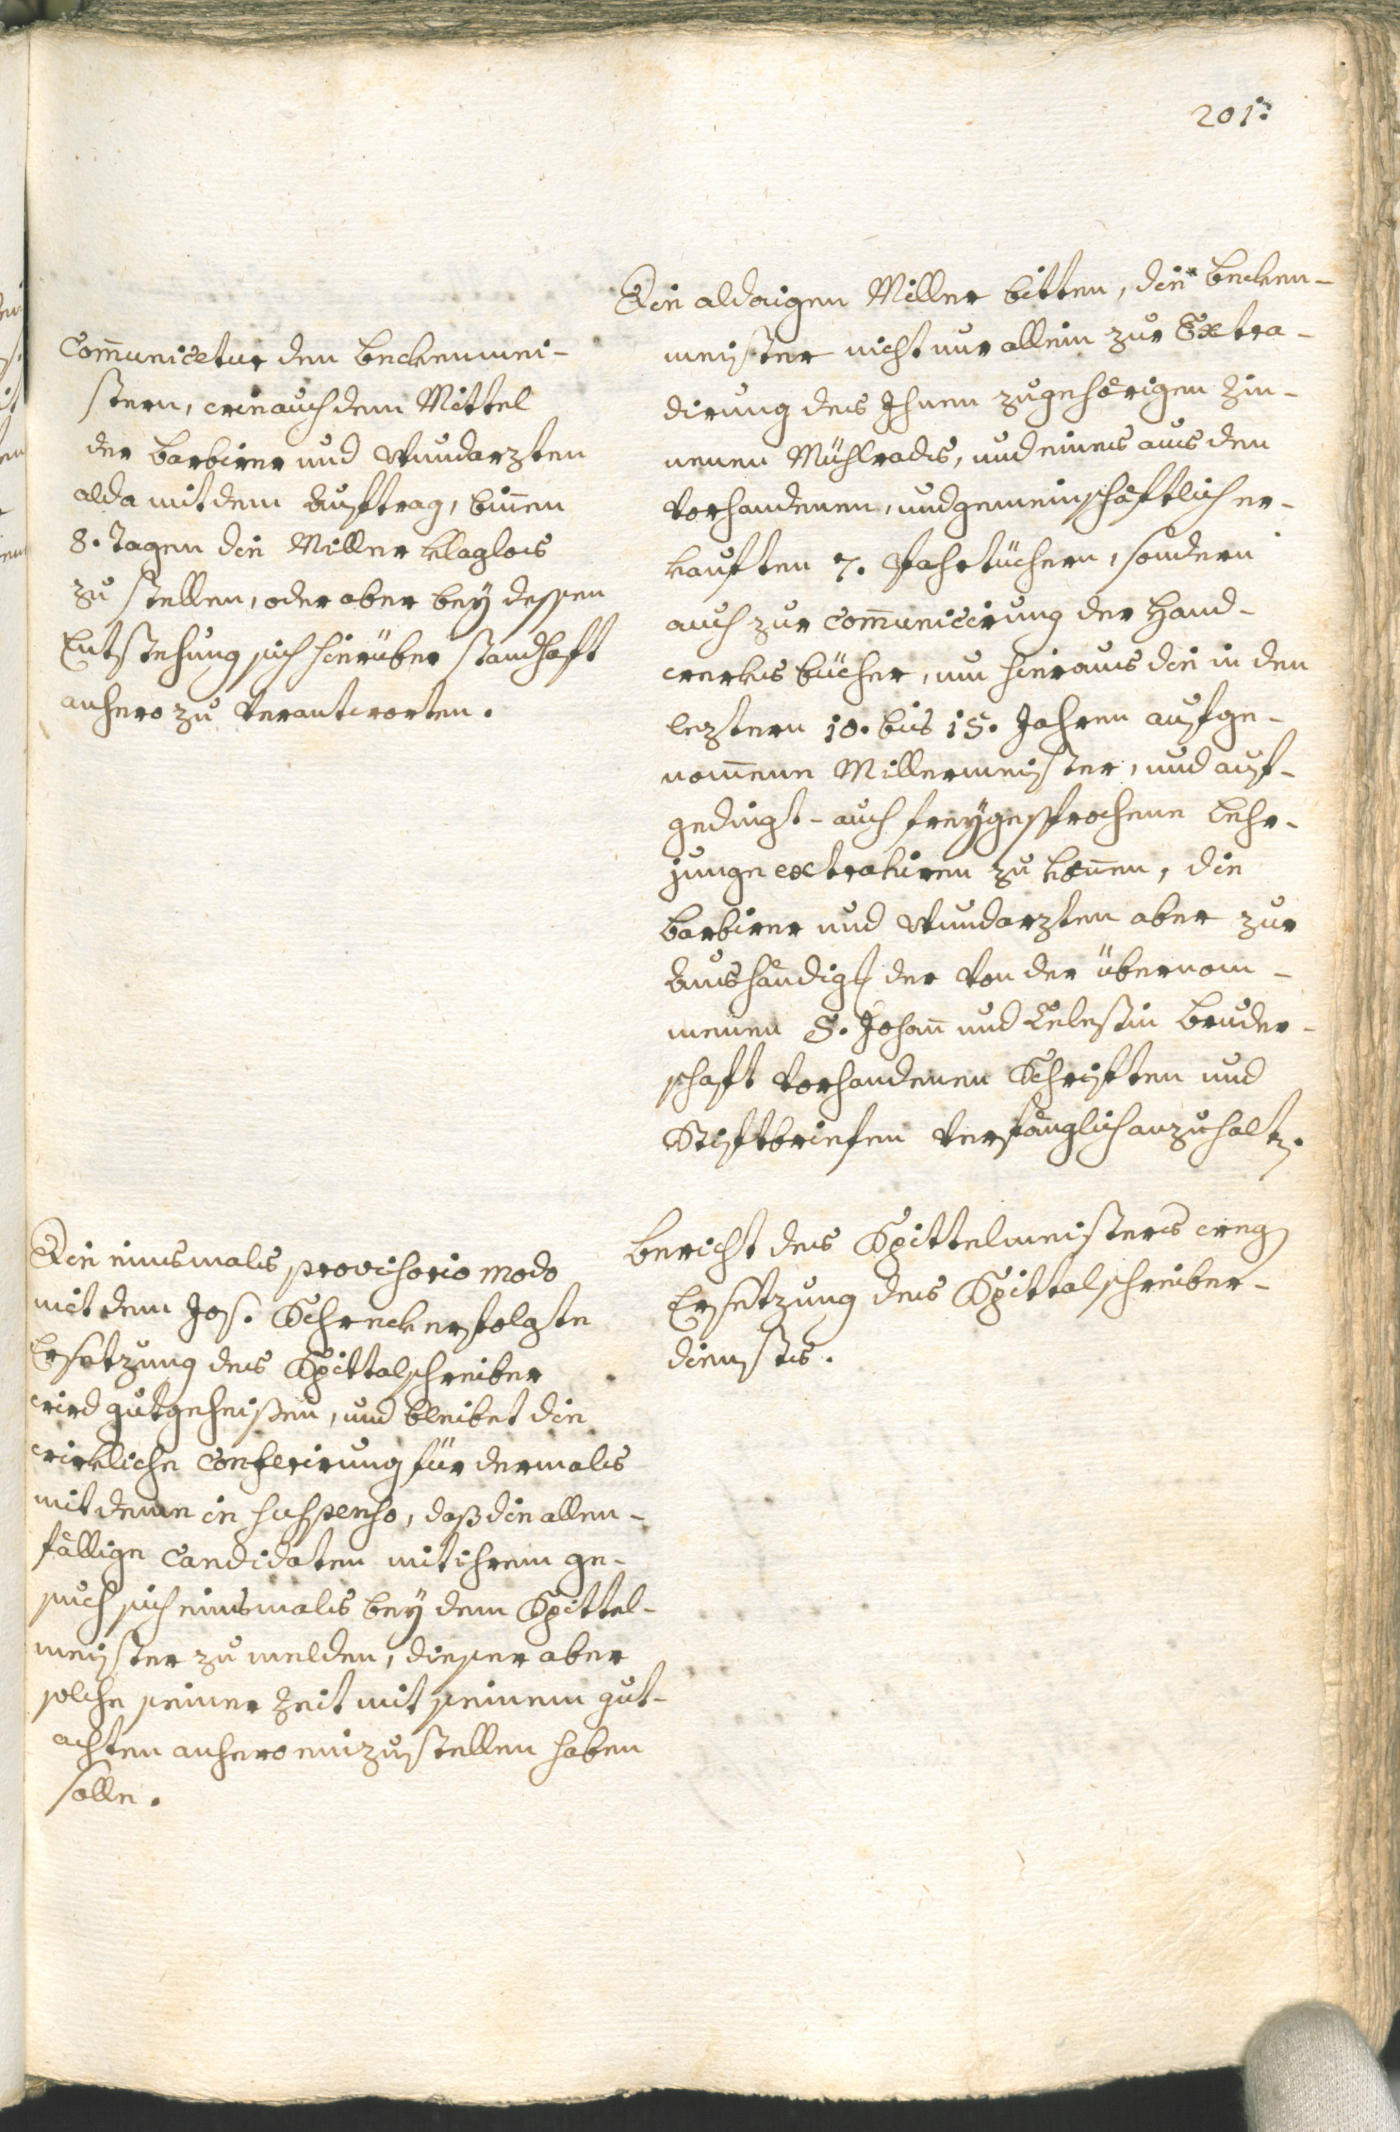 201:
Die aldaigen Miller bitten, die Becken-
meister nicht nur allein zur Extra-
dirung des Ihnen zugehörigen Zin-
nenen Mühlrades, und eines aus den
vorhandenen, und gemeinschäftlich er-
kauften 7. Bahrtüchern, sondern
auch zur Com̄unicirung der Hand-
werks bücher, um hieraus die in den
leztern 10. bis 15. Jahren aufge-
nom̄ene Millermeister, und auf-
gedingt- auch freÿgesprochene Lehr-
junge extrahiren zu kön̄en, die
Barbirer und Wundarzten aber zur
Aushändig der von der übernom-
menen S. Johan̄ und Celestin Bruder-
schaft vorhandenen Schriften und
Stiftbriefen verfänglich anzuhaltn.
Com̄unicetur den Beckenmei-
stern, wie auch dem Mittel
der Barbirer und Wundarzten
alda mit dem Auftrag, bin̄en
8. Tagen die Miller klaglos
zu stellen, oder aber beÿ dessen
Entstehung sich hierüber standhaft
anhero zu verantworten.
Bericht des Spittelmeisters weg
Ersetzung des Spittalschreiber-
dienstes.
Die einsmals provisorio modo
mit dem Jos. Schreck erfolgte
Ersetzung des Spittalschreiber
wird gutgeheißen, und bleibet die
wirkliche Conferirung für dermals
mit deme in suspenso, daß die allen-
fällige Candidaten mit ihrem ge-
such sich einsmals beÿ dem Spittel-
meister zu melden, dieser aber
solche seiner Zeit mit seinem gut-
achten anhero einzustellen haben
solle.